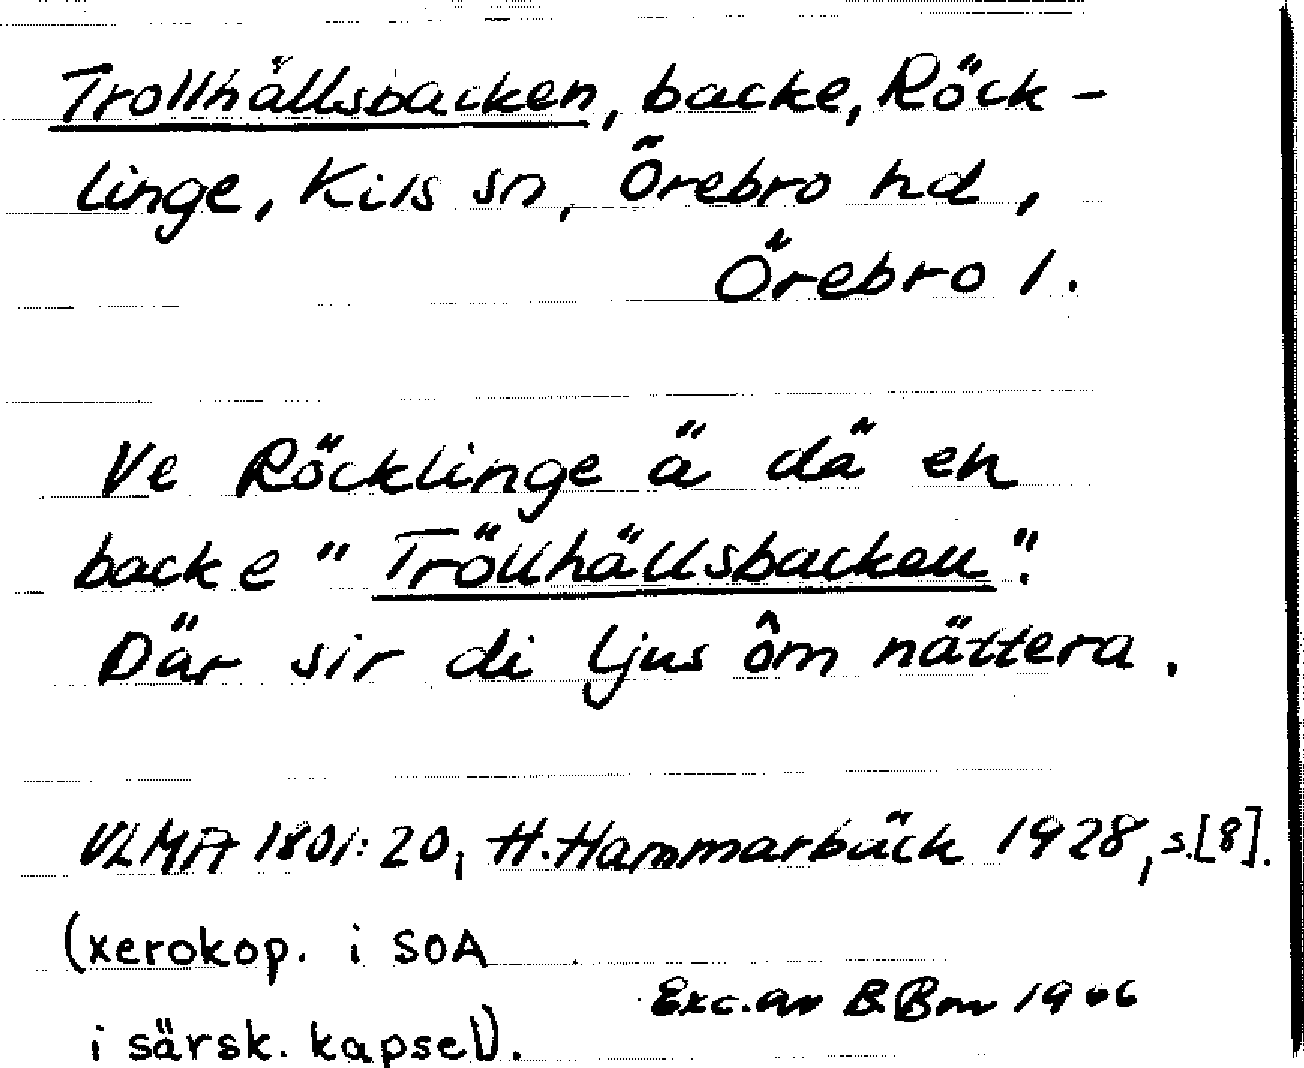 Trollhällsbacken, backe, Röck-
linge, Kils sn, Örebro hd,
Örebro l.
Ve Röcklinge ä dä en
backe "Tröllhällsbacken".
Där sir di ljus ôm nättera.
VLMA 1801:20, H. Hammarbäck 1928, s.[8].
(xerokop. i SOA
i särsk. kapsel).
Exc. av B.